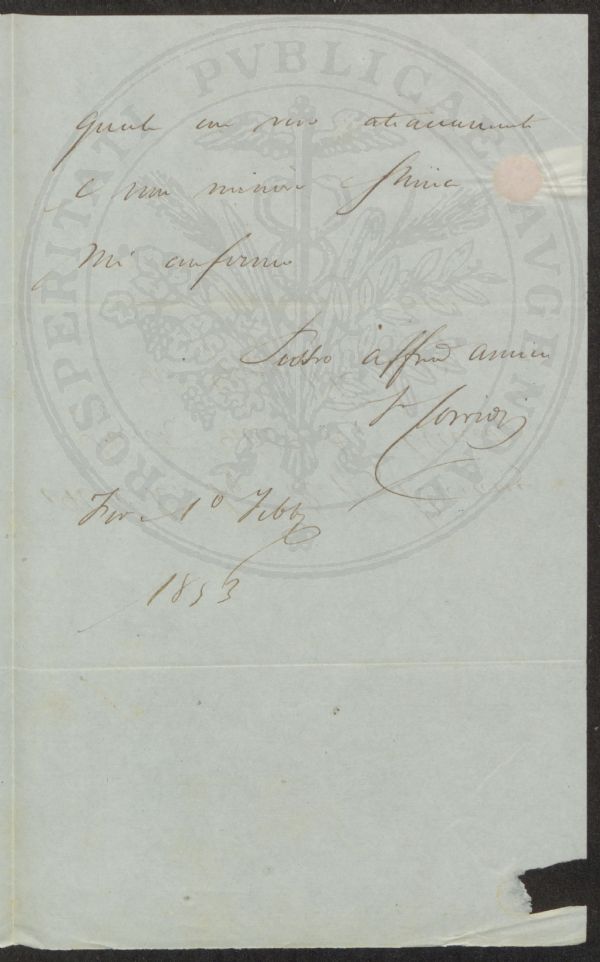 PROSPERITATI PVBLICAE AVGENDAE
quale con vivo attaccamento
e non minore stima
mi confermo
Vostro affmo amico
F Corridi
1º Febb
1853